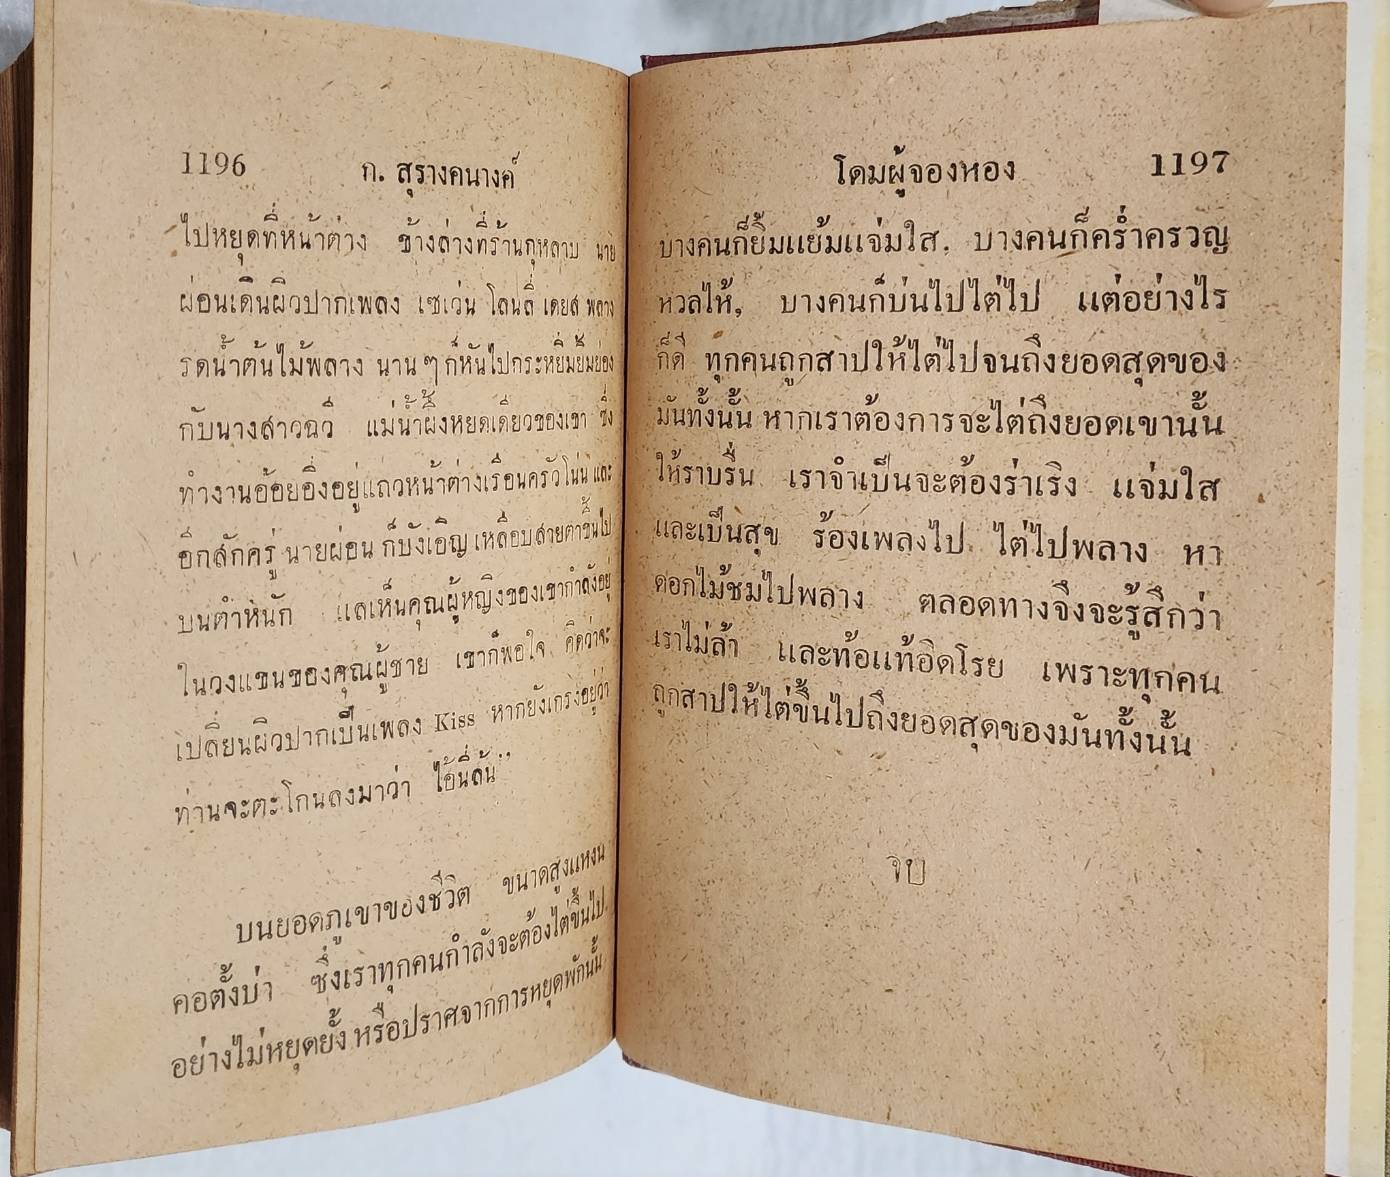 1196 ก. สุรางคนางค์
ไปหยุดที่หน้าต่าง ข้างล่างที่ร้านกุหลาบ นาย
ผ่อนเดินผิวปากเพลง เซเว่น โลนลี่ เดยส์ พลาง
รดน้ำต้นไม้พลาง นาน ๆ ก็หันไปกระหยิ่มยิ้มย่อง
กับนางสาวฉวี แม่น้ำผึ้งหยดเดียวของเขา ซึ่ง
ทำงานอ้อยอิ่งอยู่แถวหน้าต่างเรือนครัวโน่น และ
อีกสักครู่ นายผ่อน ก็บังเอิญ เหลือบสายตาขึ้นไป
บนตำหนัก แลเห็นคุณผู้หญิงของเขากำลังอยู่
ในวงแขนของคุณผู้ชาย เขาก็พอใจ คิดว่าจะ
เปลี่ยนผิวปากเป็นเพลง Kiss หากยังเกรงอยู่ว่า
ท่านจะตะโกนลงมาว่า ไอ้นี่ล้น''
บนยอดภูเขาของชีวิต ขนาดสูงแหงน
คอตั้งบ่า ซึ่งเราทุกคนกำลังจะต้องไต่ขึ้นไป
อย่างไม่หยุดยั้ง หรือปราศจากการหยุดพักนั้น
โดมผู้จองหอง 1197
บางคนก็ยิ้มแย้มแจ่มใส, บางคนก็คร่ำครวญ
หวลไห้, บางคนก็บ่นไปไต่ไป แต่อย่างไร
ก็ดี ทุกคนถูกสาปให้ไต่ไปจนถึงยอดสุดของ
มันทั้งนั้น หากเราต้องการจะไต่ถึงยอดเขานั้น
ให้ราบรื่น เราจำเป็นจะต้องร่าเริง แจ่มใส
และเป็นสุข ร้องเพลงไป ไต่ไปพลาง หา
ดอกไม้ชมไปพลาง ตลอดทางจึงจะรู้สึกว่า
เราไม่ล้า และท้อแท้อิดโรย เพราะทุกคน
ถูกสาปให้ไต่ขึ้นไปถึงยอดสุดของมันทั้งนั้น
จบ